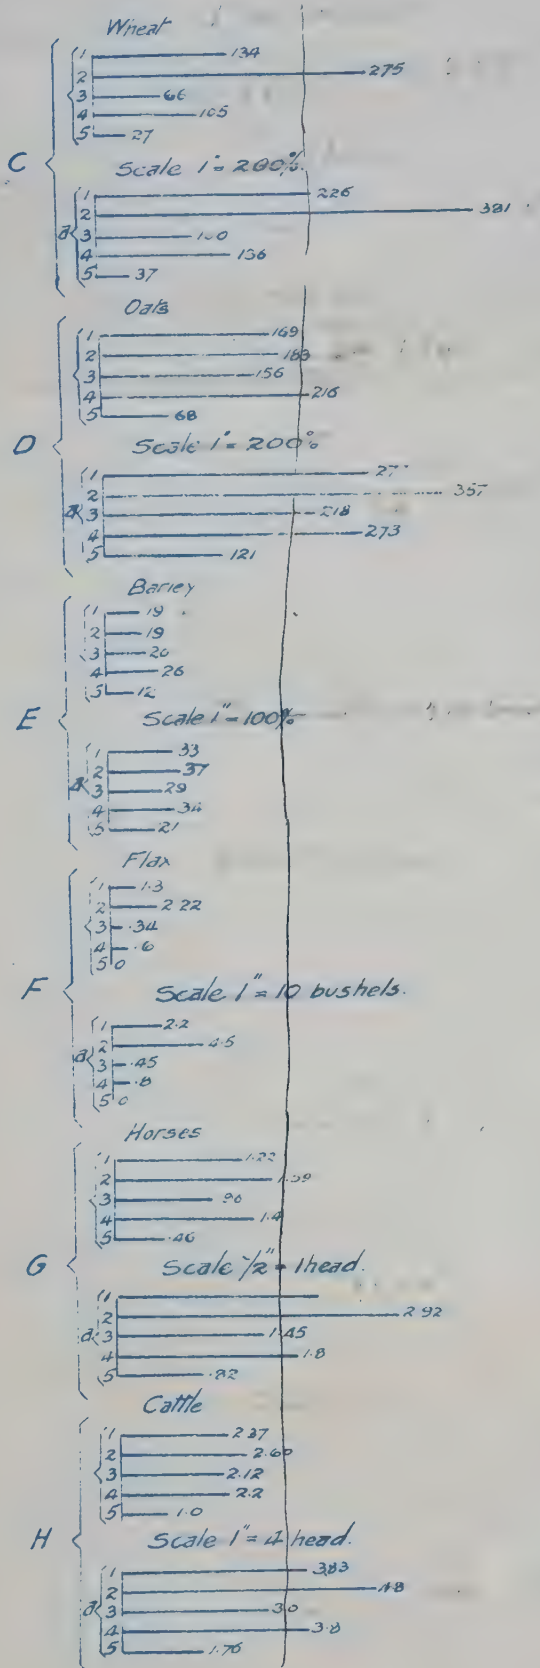 Wheat
1 134
2 275
3 66
4 105
5 27
C
Scale 1" = 200%
1 226
2 381
a 3 100
4 136
5 37
Oats
1 169
2 183
3 156
4 216
5 68
D
Scale 1" = 200%
1
2 357
a 3 218
4 273
5 121
Barley
1 19
2 19
3 20
4 26
5 12
E
Scale 1" = 100%
1 33
2 37
a 3 29
4 34
5 21
Flax
1 1.3
2 2.22
3 .34
4 .6
5 0
F
Scale 1" = 10 bushels.
1 2.2
2 4.5
a 3 .45
4 .8
5 0
Horses
1 1.22
2
3 .96
4 1.4
5 .46
G
Scale 1/2" = 1 head.
1
2 2.92
a 3 1.45
4 1.8
5 .82
Cattle
1 2.37
2 2.60
3 2.12
4 2.2
5 1.0
H
Scale 1" = 4 head.
1 3.83
2 4.8
a 3 3.0
4 3.8
5 1.76